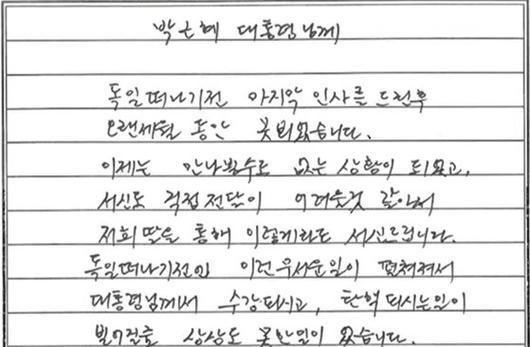 박근혜 대통령님께
독일떠나기전 마지막 인사를 드린후
오랜세월 동안 못뵈었습니다.
이제는 만나뵐수도 없는 상황이 되었고,
서신도 직접 전달이 어려울것 같아서
저희 딸을 통해 이렇게라도 서신드립니다.
독일떠나기전에 이런 무서운일이 펼쳐져서
대통령님께서 수감되시고, 탄핵되시는일이
벌어질줄 상상도 못한일이 었습니다.